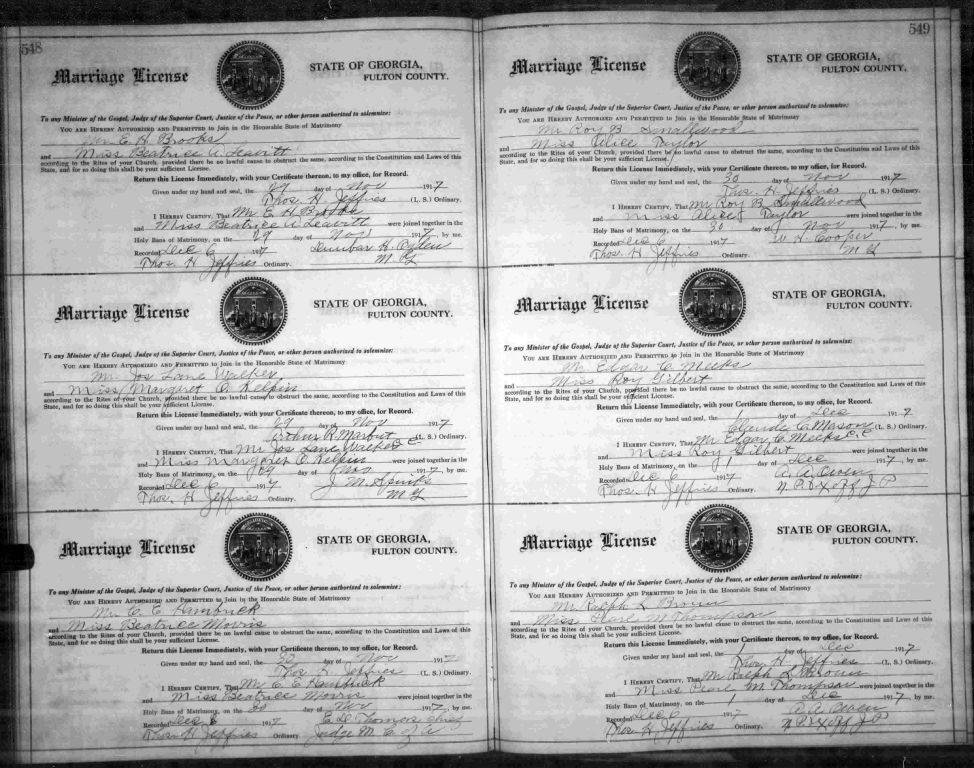 548
Marriage License
STATE OF GEORGIA,
FULTON COUNTY.
To any Minister of the Gospel, Judge of the Superior Court, Justice of the Peace, or other person authorized to solemnize:
YOU ARE HEREBY AUTHORIZED AND PERMITTED to Join in the Honorable State of Matrimony
Mr E. H. Brooks
and Miss Beatrice A. Leavitt
according to the Rites of your Church, provided there be no lawful cause to obstruct the same, according to the Constitution and Laws of this
State, and for so doing this shall be your sufficient License.
Return this License Immediately, with your Certificate thereon, to my office, for Record.
Given under my hand and seal, the 27 day of Nov 1917
Thos. H. Jeffries (L. S.) Ordinary.
I HEREBY CERTIFY, That Mr E H Brooks
and Miss Beatrice A Leavitt were joined together in the
Holy Bans of Matrimony, on the 29 day of Nov 1917, by me.
Recorded Dec 6 1917 Dunbar H. Ogden
Thos. H Jeffries Ordinary. M G
Marriage License
STATE OF GEORGIA,
FULTON COUNTY.
To any Minister of the Gospel, Judge of the Superior Court, Justice of the Peace, or other person authorized to solemnize:
YOU ARE HEREBY AUTHORIZED AND PERMITTED to Join in the Honorable State of Matrimony
Mr Jos Lane Walker
and Miss Margaret O.
according to the Rites of your Church, provided there be no lawful cause to obstruct the same, according to the Constitution and Laws of this
State, and for so doing this shall be your sufficient License.
Return this License Immediately, with your Certificate thereon, to my office, for Record.
Given under my hand and seal, the 27 day of Nov 1917
Arthur R. Marbut C C (L. S.) Ordinary.
I HEREBY CERTIFY, That Mr Jos Lane Walker
and Miss Margaret O. were joined together in the
Holy Bans of Matrimony, on the 29 day of Nov 1917, by me.
Recorded Dec 6 1917 J M Spinks
Thos. H Jeffries Ordinary. M G
Marriage License
STATE OF GEORGIA,
FULTON COUNTY.
To any Minister of the Gospel, Judge of the Superior Court, Justice of the Peace, or other person authorized to solemnize:
YOU ARE HEREBY AUTHORIZED AND PERMITTED to Join in the Honorable State of Matrimony
Mr C. E. Hambrick
and Miss Beatrice Morris
according to the Rites of your Church, provided there be no lawful cause to obstruct the same, according to the Constitution and Laws of this
State, and for so doing this shall be your sufficient License.
Return this License Immediately, with your Certificate thereon, to my office, for Record.
Given under my hand and seal, the 30 day of Nov 1917
Thos H Jeffries (L. S.) Ordinary.
I HEREBY CERTIFY, That Mr C E Hambrick
and Miss Beatrice Morris were joined together in the
Holy Bans of Matrimony, on the 30 day of Nov 1917, by me.
Recorded Dec 6 1917 E. D. Thomas Chief
Thos H Jeffries Ordinary Judge M. C. of A
549
Marriage License
STATE OF GEORGIA,
FULTON COUNTY.
To any Minister of the Gospel, Judge of the Superior Court, Justice of the Peace, or other person authorized to solemnize:
YOU ARE HEREBY AUTHORIZED AND PERMITTED to Join in the Honorable State of Matrimony
Mr Roy B. Smallwood
and Miss Alice Taylor
according to the Rites of your Church, provided there be no lawful cause to obstruct the same, according to the Constitution and Laws of this
State, and for so doing this shall be your sufficient License.
Return this License Immediately, with your Certificate thereon, to my office, for Record.
Given under my hand and seal, the 30 day of Nov 1917
Thos. H. Jeffries (L. S.) Ordinary.
I HEREBY CERTIFY, That Mr Roy B Smallwood
and Miss Alice Taylor were joined together in the
Holy Bans of Matrimony, on the 30 day of Nov 1917, by me.
Recorded Dec 6 1917 W. H. Cooper
Thos. H. Jeffries Ordinary. M G
Marriage License
STATE OF GEORGIA,
FULTON COUNTY.
To any Minister of the Gospel, Judge of the Superior Court, Justice of the Peace, or other person authorized to solemnize:
YOU ARE HEREBY AUTHORIZED AND PERMITTED to Join in the Honorable State of Matrimony
Mr Edgar C. Meeks
and Miss Roy Gilbert
according to the Rites of your Church, provided there be no lawful cause to obstruct the same, according to the Constitution and Laws of this
State, and for so doing this shall be your sufficient License.
Return this License Immediately, with your Certificate thereon, to my office, for Record.
Given under my hand and seal, the 1 day of Dec 1917
Claude C. Mason C C (L. S.) Ordinary.
I HEREBY CERTIFY, That Mr Edgar C. Meeks
and Miss Roy Gilbert were joined together in the
Holy Bans of Matrimony, on the 1 day of Dec 1917, by me.
Recorded Dec 6 1917 A. A. Owen
Thos. H Jeffries Ordinary. N. P. & Ex Off J P
Marriage License
STATE OF GEORGIA,
FULTON COUNTY.
To any Minister of the Gospel, Judge of the Superior Court, Justice of the Peace, or other person authorized to solemnize:
YOU ARE HEREBY AUTHORIZED AND PERMITTED to Join in the Honorable State of Matrimony
Mr Ralph L Brown
and Miss Pearl M Thompson
according to the Rites of your Church, provided there be no lawful cause to obstruct the same, according to the Constitution and Laws of this
State, and for so doing this shall be your sufficient License.
Return this License Immediately, with your Certificate thereon, to my office, for Record.
Given under my hand and seal, the 1 day of Dec 1917
Thos H Jeffries (L. S.) Ordinary.
I HEREBY CERTIFY, That Mr Ralph L Brown
and Miss Pearl M Thompson were joined together in the
Holy Bans of Matrimony, on the 1 day of Dec 1917, by me.
Recorded Dec 6 1917 A. A. Owen
Thos. H Jeffries Ordinary N. P. & Ex Off J P